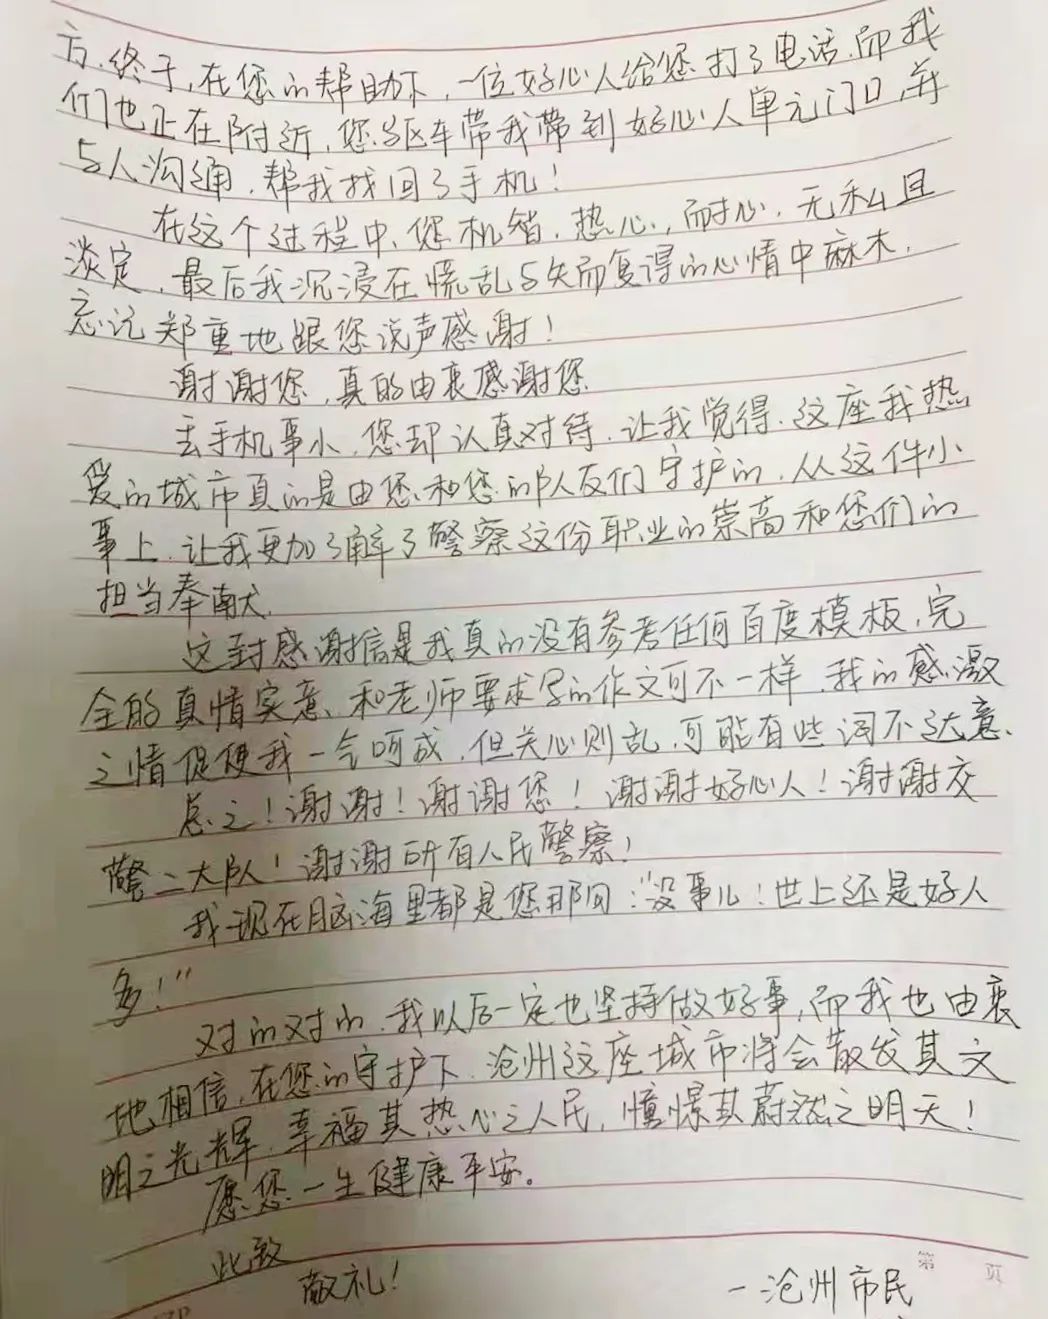 方.终于,在您的帮助下,一位好心人给您打了电话.而我
们也正在附近,您驱车带我带到好心人单元门口,并
与人沟通.帮我找回了手机!
在这个过程中、您机智.热心,耐心.无私且
淡定,最后我沉浸在慌乱与失而复得的心情中麻木.
忘记郑重地跟您说声感谢!
谢谢您,真的由衷感谢您
丢手机事小.您却认真对待.让我觉得.这座我热
爱的城市真的是由您和您的队友们守护的.从这件小
事上.让我更加了解了警察这份职业的崇高和您们的
担当奉献.
这封感谢信是我真的没有参考任何百度模板,完
全的真情实意、和老师要求写的作文可不一样.我的感激
之情促使我一气呵成.但关心则乱.可能有些词不达意.
总之!谢谢!谢谢您!谢谢好心人!谢谢交
警二大队!谢谢所有人民警察!
我现在脑海里都是您那句:"没事儿!世上还是好人
多!"
对的对的.我以后一定也坚持做好事,而我也由衷
地相信,在您的守护下.沧州这座城市将会散发其文
明之光辉.幸福其热心之人民,憧憬其蔚然之明天!
愿您一生健康平安。
此致
敬礼!
第 页
一沧州市民